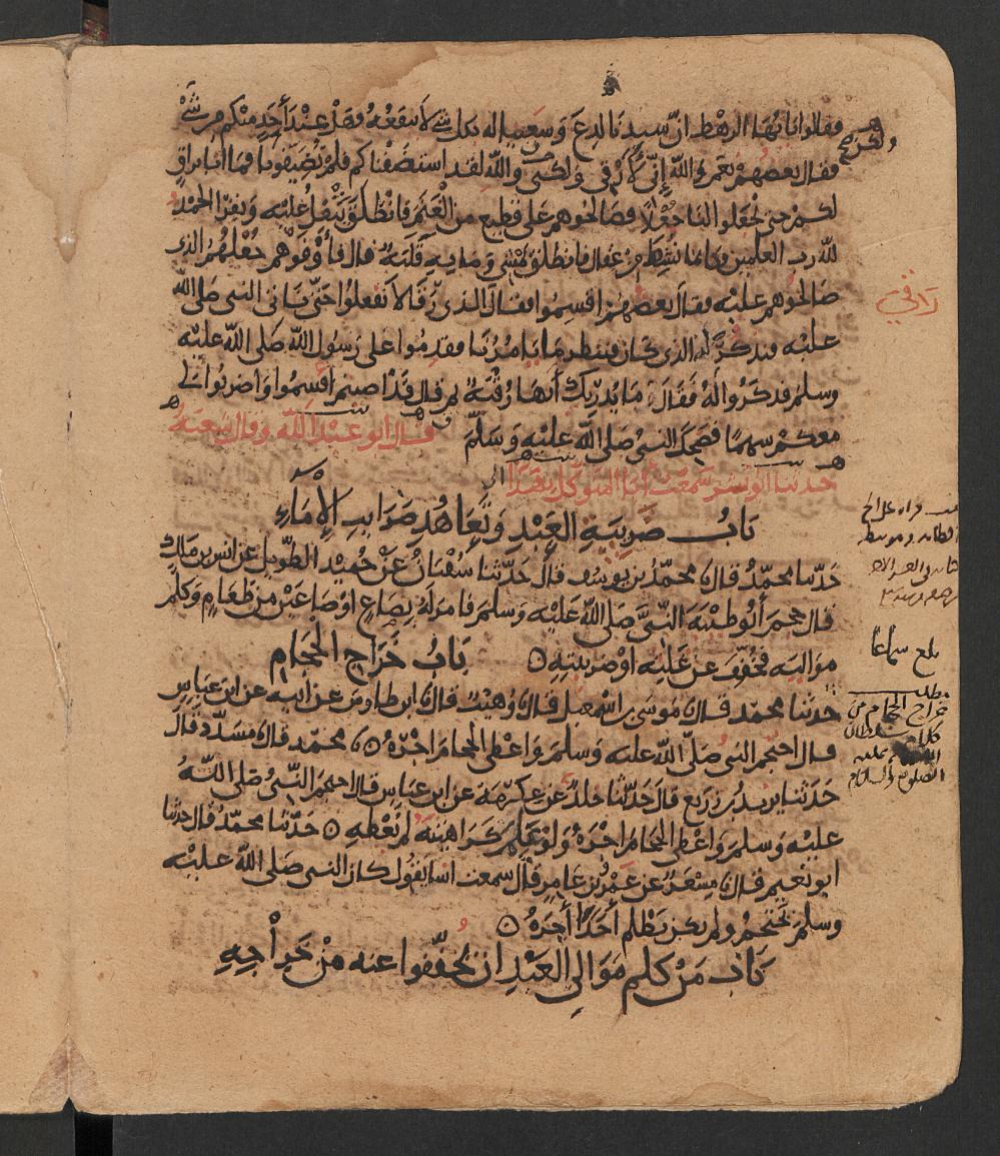 فقالوا يا ايها الرهط ان سيدنا لدغ وسعينا له بكل شي لا ينفعه فهل عند أحد منكم من شي
فقال بعضهم نعم والله إني لأرقي ولكن والله لقد استضفناكم فلم تضيفونا فما انا براق
لكم حتى تجعلوا لنا جعلا فصالحوهم على قطيع من الغنم فانطلق يتفل عليه ويقرا الحمد
لله رب العلمين فكانما نشط من عقال فانطلق يمشي وما به قلبة قال فأوفوهم جعلهم الذي
صالحوهم عليه فقال بعضهم اقسموا فقال الذي رقا لا تفعلوا حتى ياتي النبي صلى الله
عليه فنذكر له الذي كان فننظر ما يامرنا فقدموا على رسول الله صلى الله عليه
وسلم فذكروا له فقال ما يدريك أنها رقية ثم قال قد اصبتم اقسموا واضربوا لي
معكم سهما فضحك النبي صلى الله عليه وسلم قال ابو عبد الله وقال شعبة
حدثنا ابو بشر سمعت ابا المتوكل بهذا
باب ضريبة العبد وتعاهد ضرايب الإماء
حدثنا محمد قال محمد بن يوسف قال حدثنا سفيان عن حميد الطويل عن انس بن مالك
قال حجم أبو طيبة النبي صلى الله عليه وسلم فامر له بصاع او صاعين من طعام وكلم
مواليه فخفف عن غلته او ضريبته ٥ باب خراج الحجام
حدثنا محمد قال موسى بن اسمعيل قال وهيب قال ابن طاوس عن ابيه عن ابن عباس
قال احتجم النبي صلى الله عليه وسلم واعطى الحجام اجره ٥ محمد قال مسدد قال
حدثنا يزيد بن زريع قال حدثنا خلد عن عكرمة عن ابن عباس قال احتجم النبي صلى الله
عليه وسلم واعطى الحجام اجره ولو علم كراهية لم يعطه ٥ حدثنا محمد قال حدثنا
ابو نعيم قال مسعر عن عمرو بن عامر قال سمعت انسا يقول كان النبي صلى الله عليه
وسلم يحتجم ولم يكن يظلم أحدا أجره ٥
باب من كلم موالي العبد ان يخففوا عنه من خراجه
راقي
بلغ سماعا
مطلب
خراج الحجام من
الصلوة والسلام